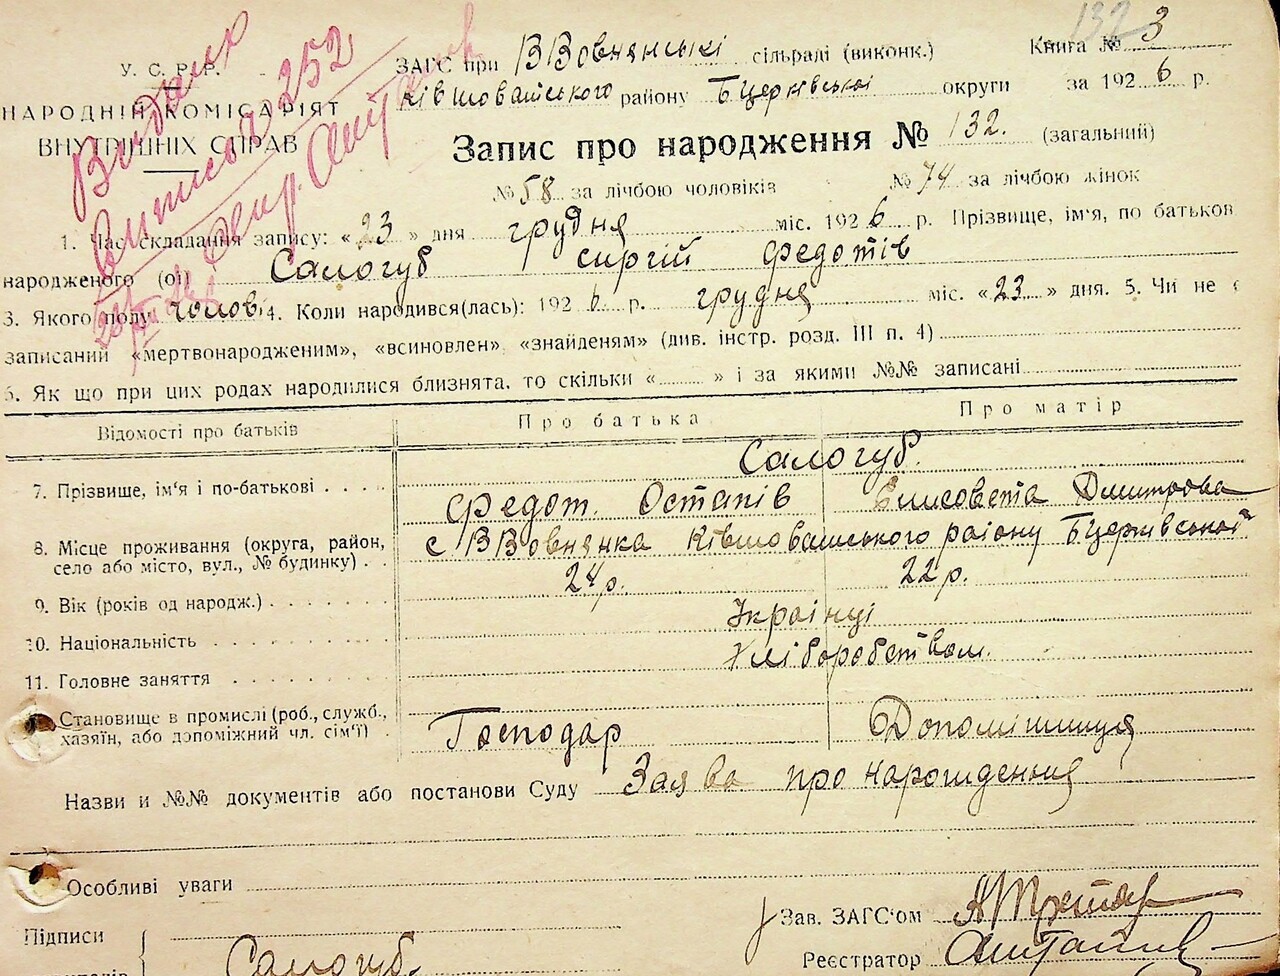 132 3
У. С. Р. Р.
НАРОДНІЙ КОМІСАРІЯТ
ВНУТРІШНІХ СПРАВ
252
ЗАГС при ВВовнянські сільраді (виконк.) Книга № 3
Ківшоватського району БЦерківської округи за 1926 р.
Запис про народження № 132. (загальний)
№ 58 за лічбою чоловіків № 74 за лічбою жінок
1. Час складання запису: «23» дня грудня міс. 1926 р. Прізвище, ім'я, по батьков
народженого (ої) Салогуб Сиргій Федотів
3. Якого полу чолов. 4. Коли народився(лась): 1926 р. грудня міс. «23» дня. 5. Чи не
записаний «мертвонародженим», «всиновлен», «знайденям» (див. інстр. розд. III п. 4)
6. Як що при цих родах народилися близнята, то скільки « » і за якими №№ записані
Відомості про батьків Про батька Про матір
Салогуб.
7. Прізвище, ім'я і по-батькові Федот. Остапів Елисовета Дмитрова
8. Місце проживання (округа, район, село або місто, вул., № будинку) с ВВовнянка Ківшоватського району БЦерківської
9. Вік (років од народж.) 24 р. 22 р.
10. Національність Українці
11. Головне заняття Хліборобством.
Становище в промислі (роб., служб., хазяїн, або допоміжний чл. сім'ї) Господар Допомішниця
Назви и №№ документів або постанови Суду Заява про нарождення
Особливі уваги
Зав. ЗАГС'ом
Підписи
Реєстратор
Салогуб.